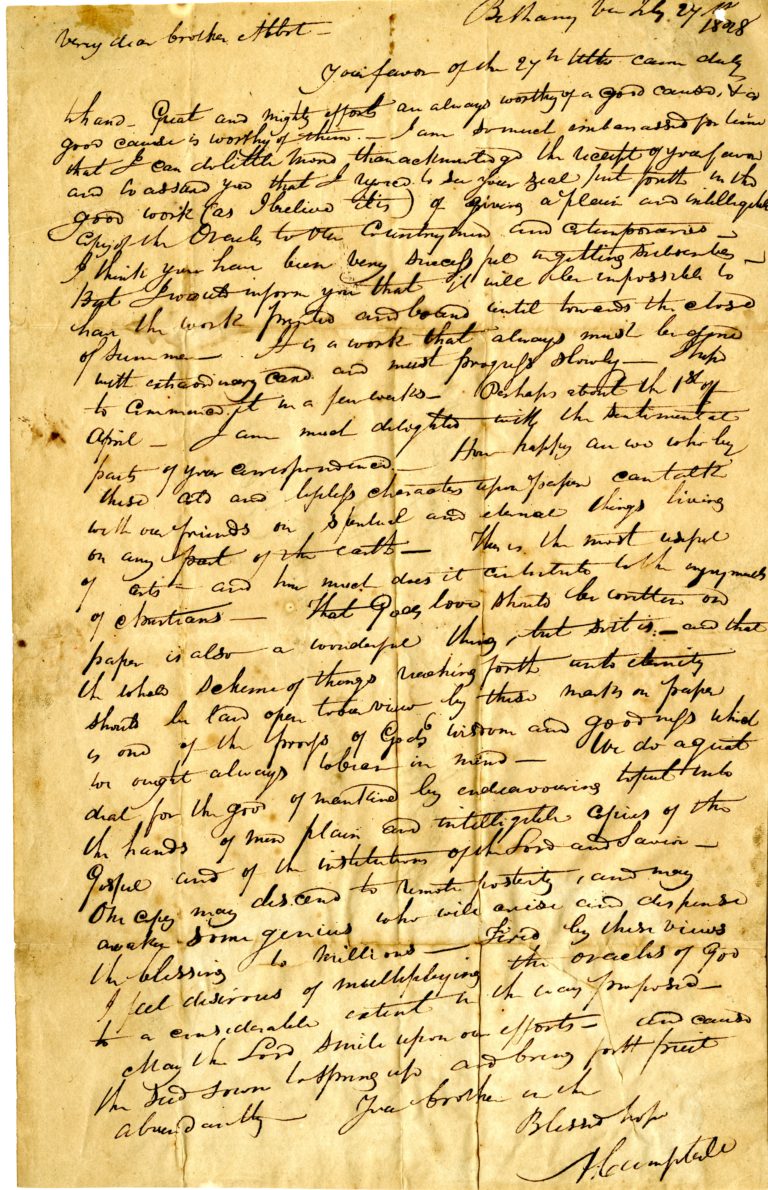 Bethany Va July 27th
1828
Very dear brother Abbot —
Your favor of the 27th Ulto came duly
to hand — Great and mighty efforts are always worthy of a good cause, & a
good cause is worthy of them. — I am so much embarrassed for time
that I can do little more than acknowledge the receipt of your favor
and to assure you that I rejoice to see your zeal put forth in the
good work (as I believe it is) of giving a plain and intelligible
copy of the Oracles to our Countrymen and cotemporaries —
I think you have been very successful in getting subscribers —
But I would inform you that it will be impossible to
have the work printed and bound until towards the close
of summer — It is a work that always must be done
with extraordinary care and must progress slowly — I hope
to commence it in a few weeks — Perhaps about the 1st of
April — I am much delighted with the sentimental
parts of your correspondence. — How happy are we who by
these and lifeless characters upon paper can talk
with our friends on spiritual and eternal things living
on any part of the earth — This is the most useful
of arts — and how much does it contribute to the enjoyments
of christians — That Gods love should be written on
paper is also a wonderful thing, but so it is. — and that
the whole scheme of things reaching forth unto eternity
should be laid open to our view by these marks on paper
is one of the proofs of Gods wisdom and goodness which
we ought always to bear in mind — We do a great
deal for the good of mankind by endeavouring to put into
the hands of men plain and intelligible copies of the
Gospel and of the institutions of the Lord and Savior —
One copy may descend to remote posterity, and may
awake some genius who will arise and dispense
the blessing to millions — Fired by these views
I feel desirous of multiplying the oracles of God
to a considerable extent in the way proposed —
May the Lord smile upon our efforts — and cause
the seed sown to spring up and bring forth fruit
abundantly — Your brother in the
Blessed hope
A Campbell